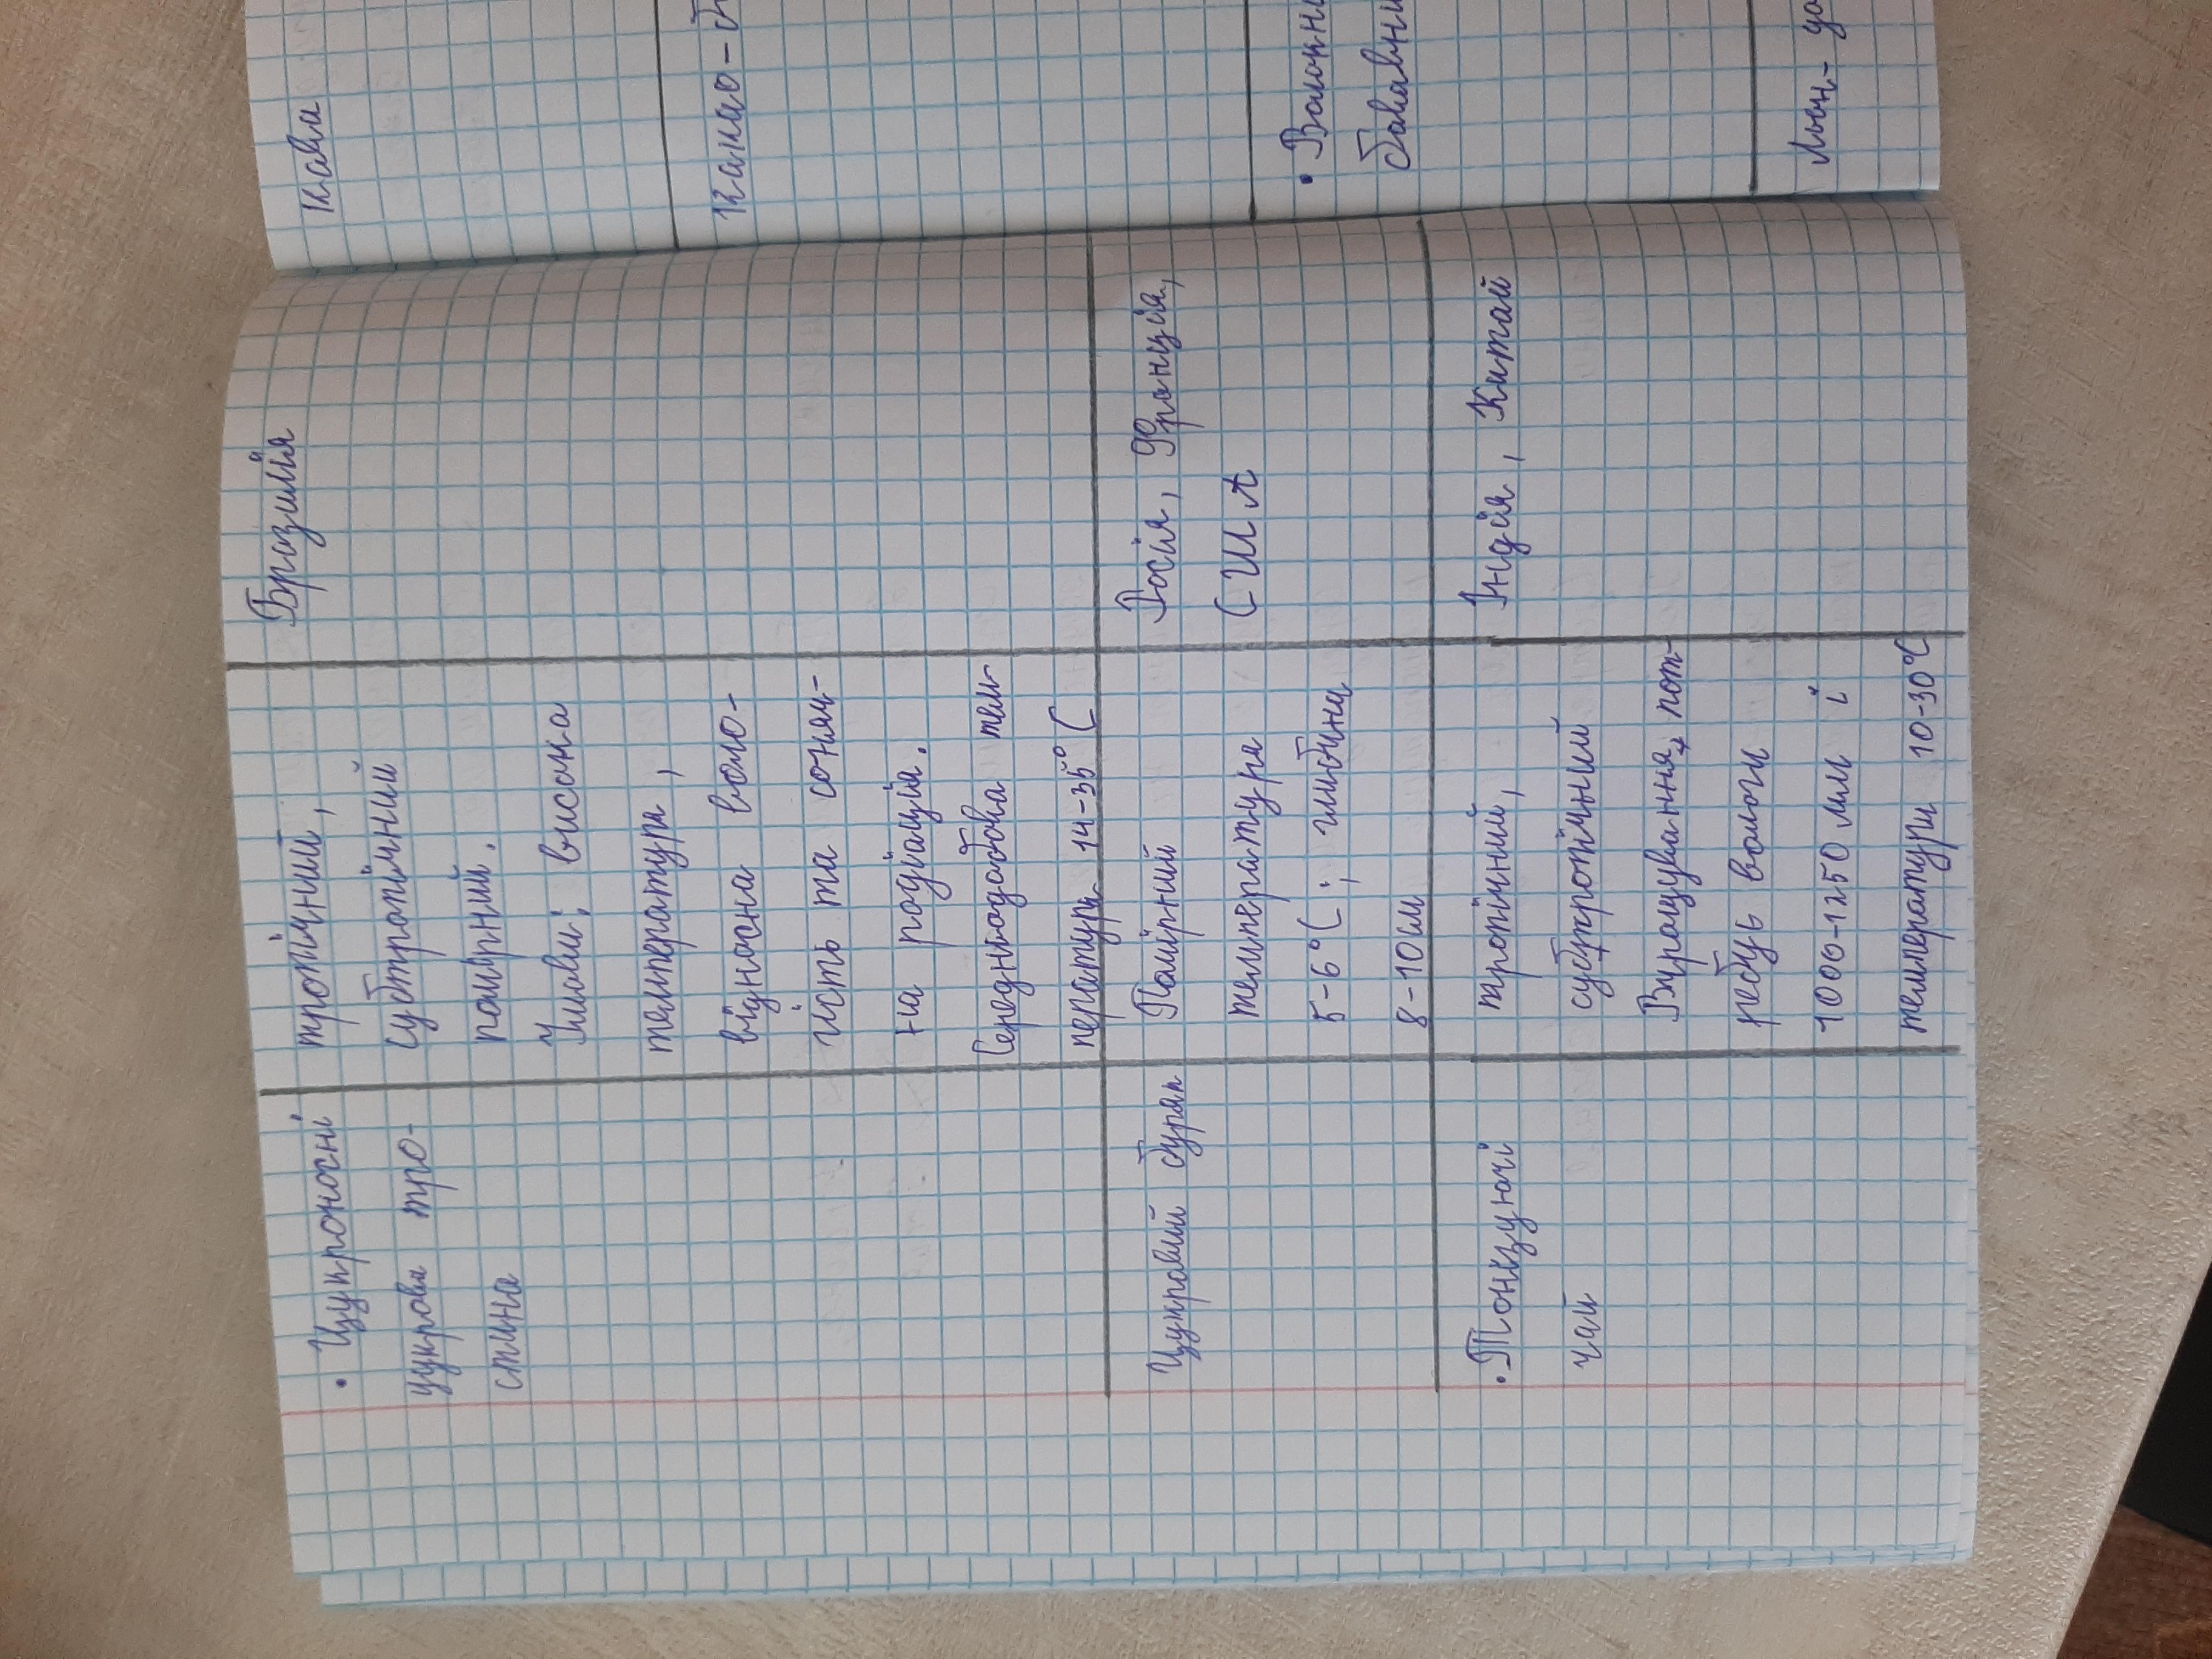 • Цукроносні
цукрова тро-
стина
тропічний,
субтропічний
помірний.
Умови: висока
температура,
відносна воло-
гість та соняч-
на радіація.
Середньодобова тем-
пература 14-35° С
Бразилія
Цукровий буряк
Помірний
температура
5-6° С; глибина
8-10 см
Росія, Франція,
США
• Тонізуючі
чай
тропічний,
субтропічний
Вирощування пот-
ребує вологи
1000-1250 мм і
температури 10-30°С
Індія, Китай
Кава
Какао-
• Волокни
бавовни
Льон-